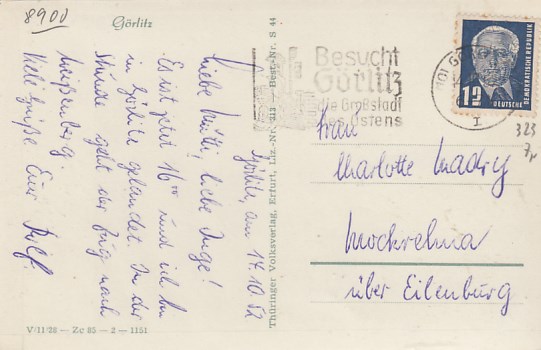 8900
Görlitz
Görlitz, am 14.10.52
Liebe Mutti, liebe Inge!
Es ist jetzt 16⁰⁰ und ich bin
in Görlitz gelandet. In der
Stunde geht der Zug nach
Weißenberg.
Viele Grüße Euer Rolf.
V/11/28 — Zc 85 — 2 — 1151
Thüringer Volksverlag, Erfurt, Liz.-Nr. 313 — Bestr.-Nr. S 44
Besucht
Görlitz
die Großstadt
des Ostens
12
DEUTSCHE
DEMOKRATISCHE REPUBLIK
323
Frau
Charlotte
Mockrehna
über Eilenburg